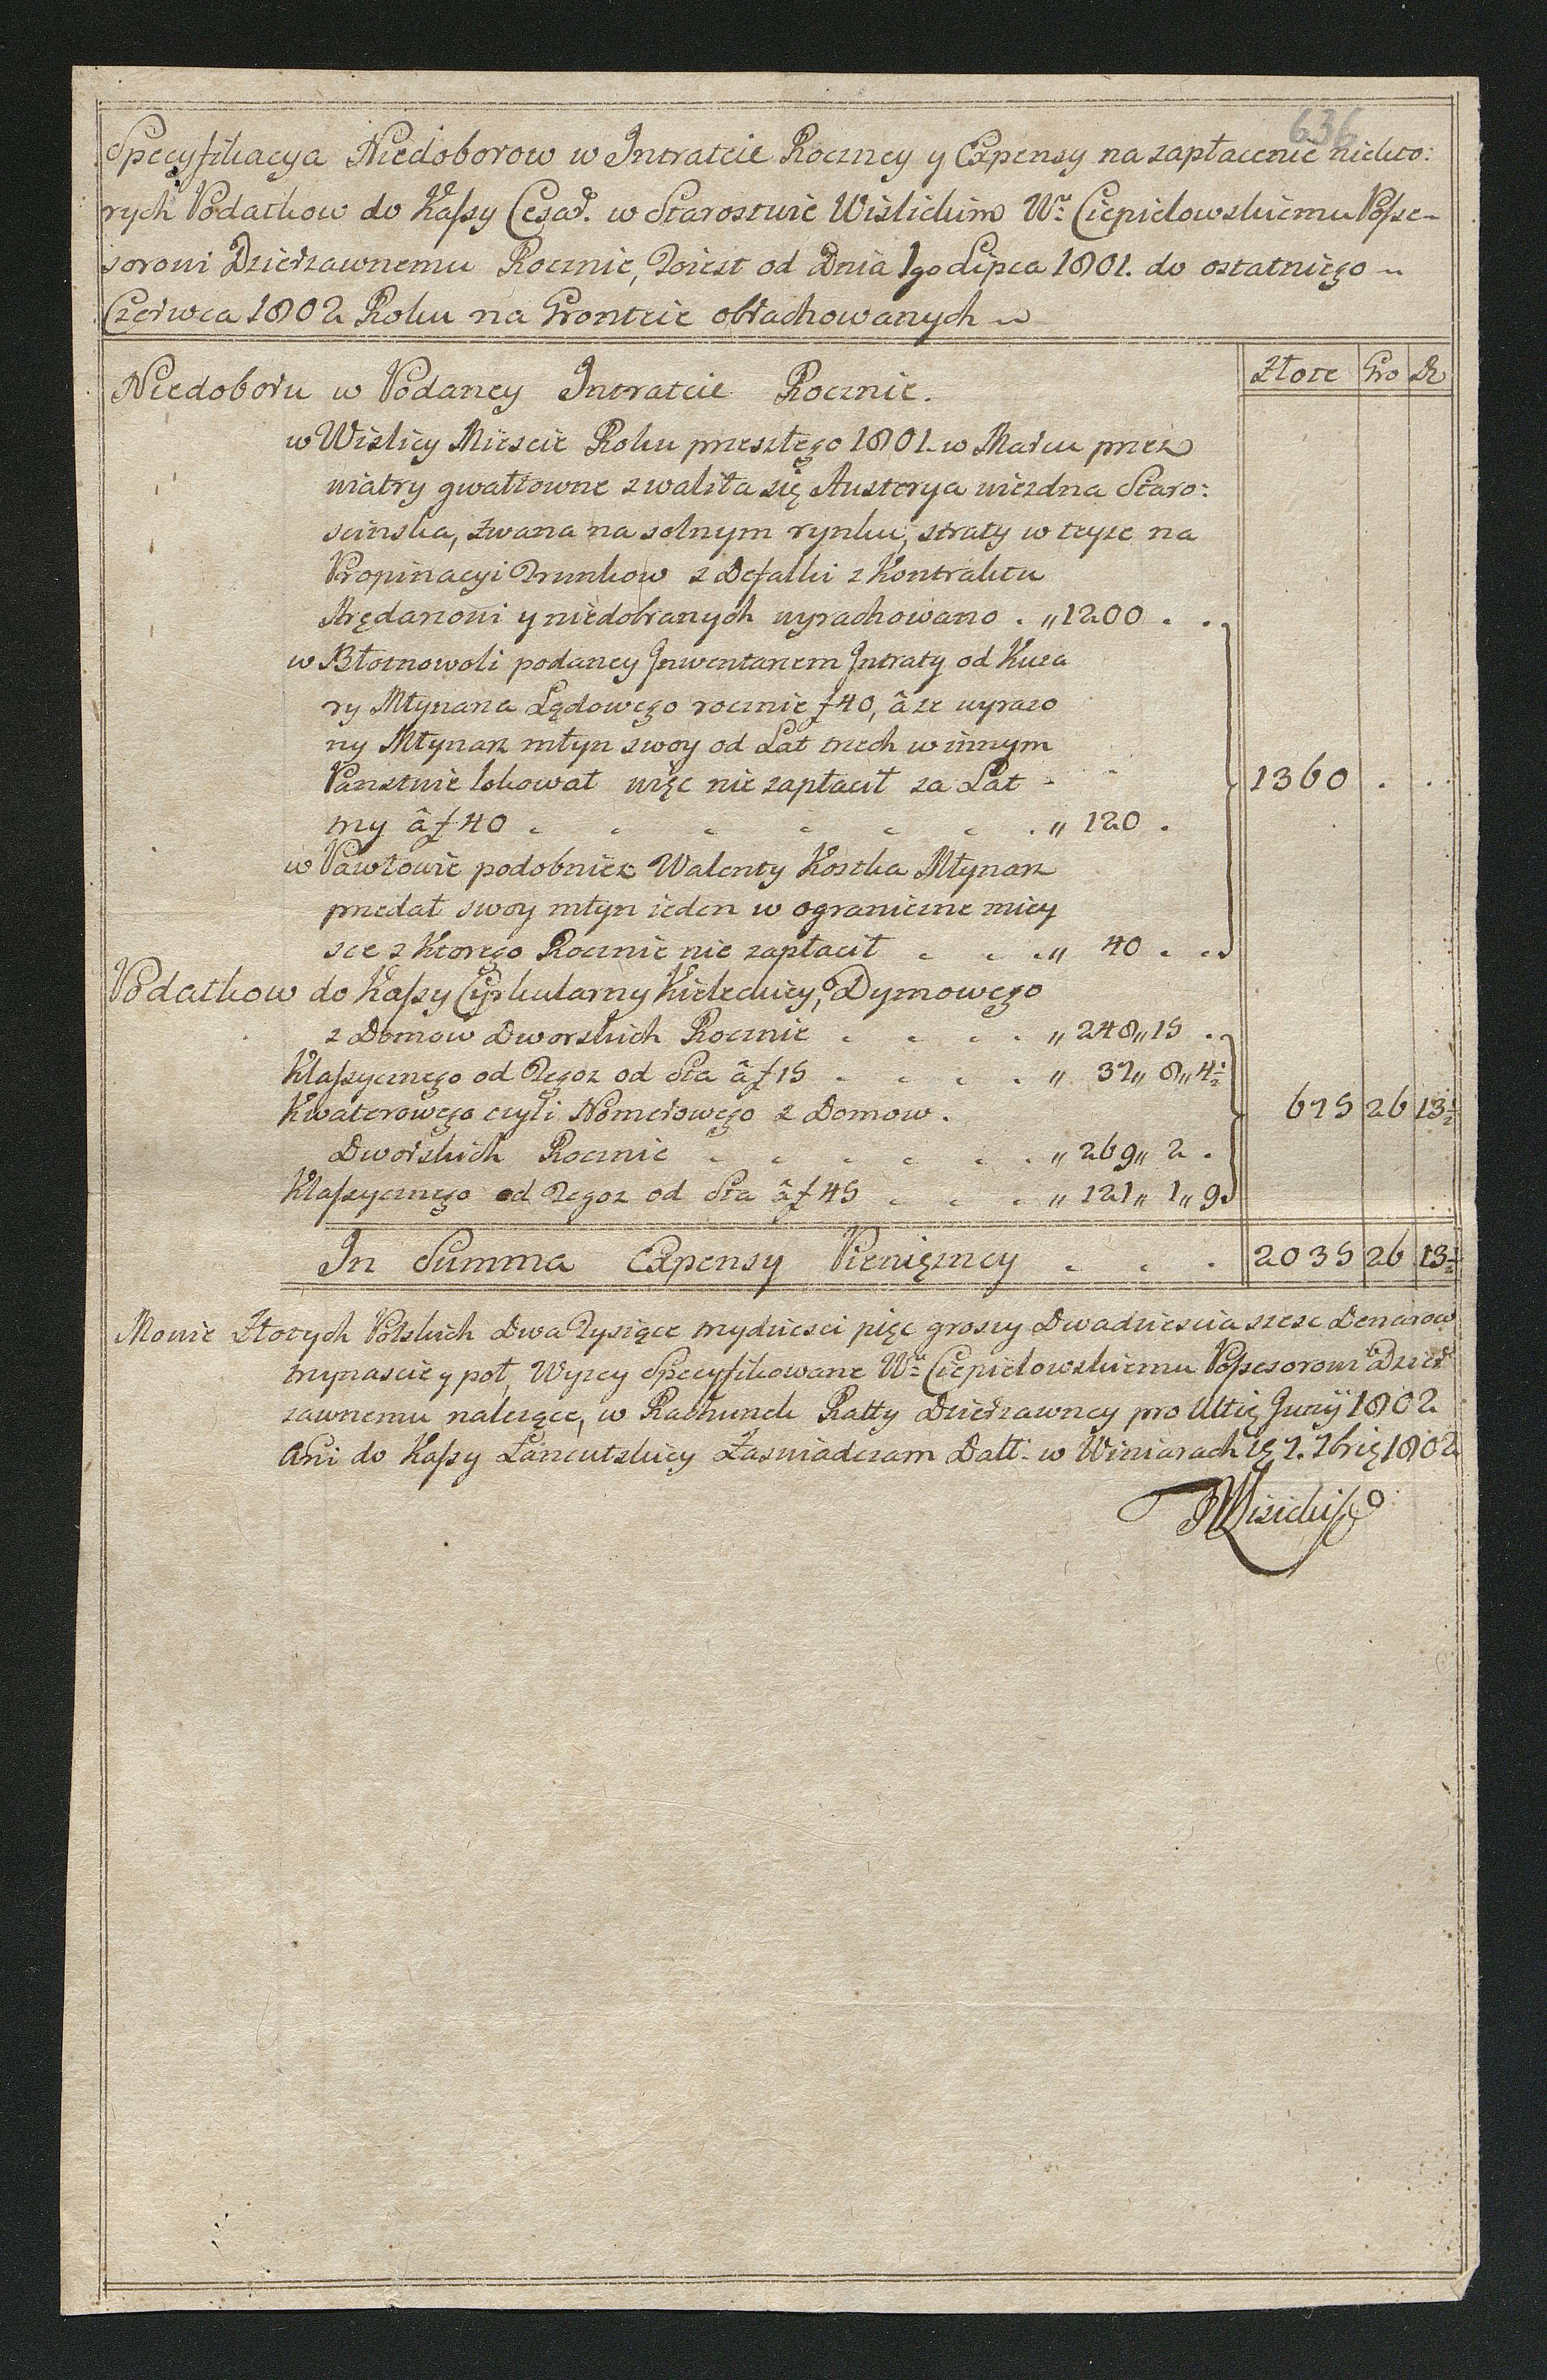 636
Specyfikacya Niedoborow w Intratcie Roczney y Expensy na zapłacenie niekto:
rych Podatkow do Kaſsy Cesar. w Starostwie Wislickim Wu Ciepielowskiemu Poſse-
sorowi Dzierzawnemu Rocznie, Toiest od Dnia 1go Lipca 1801. do ostatniego
Czerwca 1802 Roku na Grontcie obrachowanych
Złote Gro D
Niedoboru w Podaney Intratcie Rocznie.
w Wislicy Miescie Roku przeszłego 1801. w Marcu przez
wiatry gwałtowne zwaliła się Austerya wiezdna Staro:
scinska, zwana na solnym rynku, straty w teyze na
Propinacyi Trunkow z Defalki z Kontraktu
Arędarzowi y niedobranych wyrachowano . „ 1200 . .
w Błotnowoli podaney Inwentarzem Intraty od Kuza
ry Młynarza Lądowego rocznie f 40, â ze wyrazo
ny Młynarz młyn swoy od Lat trzech w innym
Panstwie lokował więc nie zapłacił za Lat -
trzy â f 40 . . . . . . . „ 120 .
1360 . .
w Pawłowie podobniez Walenty Koszka Młynarz
przedał swoy młyn ieden w ograniczne miey
sce z Ktorego Rocznie nie zapłacił . . . „ 40 . .
Podatkow do Kaſsy Cyrkularny Kieleckiey, Dymowego
z Domow Dworskich Rocznie . . . . „ 248 „ 15 .
Klaſsycznego od Tegoz od Sta â f 15 . . . . „ 37 „ 8 „ 4½
Kwaterowego czyli Nomerowego z Domow .
Dworskich Rocznie . . . . . . „ 269 „ 2 .
Klaſsycznego od Tegoz od Sta â f 45 . . . „ 121 „ 1 „ 9
675 26 13½
In Summa Expensy Pieniężney . . . 2035 26 13½
Mowie Złotych Polskich Dwa Tysiące trzydziesci pięc groszy Dwadziescia szesc Denarow
trzynascie y poł, Wyzey Specyfikowane Wu Ciepielowskiemu Poſsesorowi Dzier
zawnemu nalezące, w Rachunek Ratty Dzierzawney pro Ultię Junÿ 1802
Ani do Kaſsy Lancutskiey Zaswiadczam Datt. w Winiarach